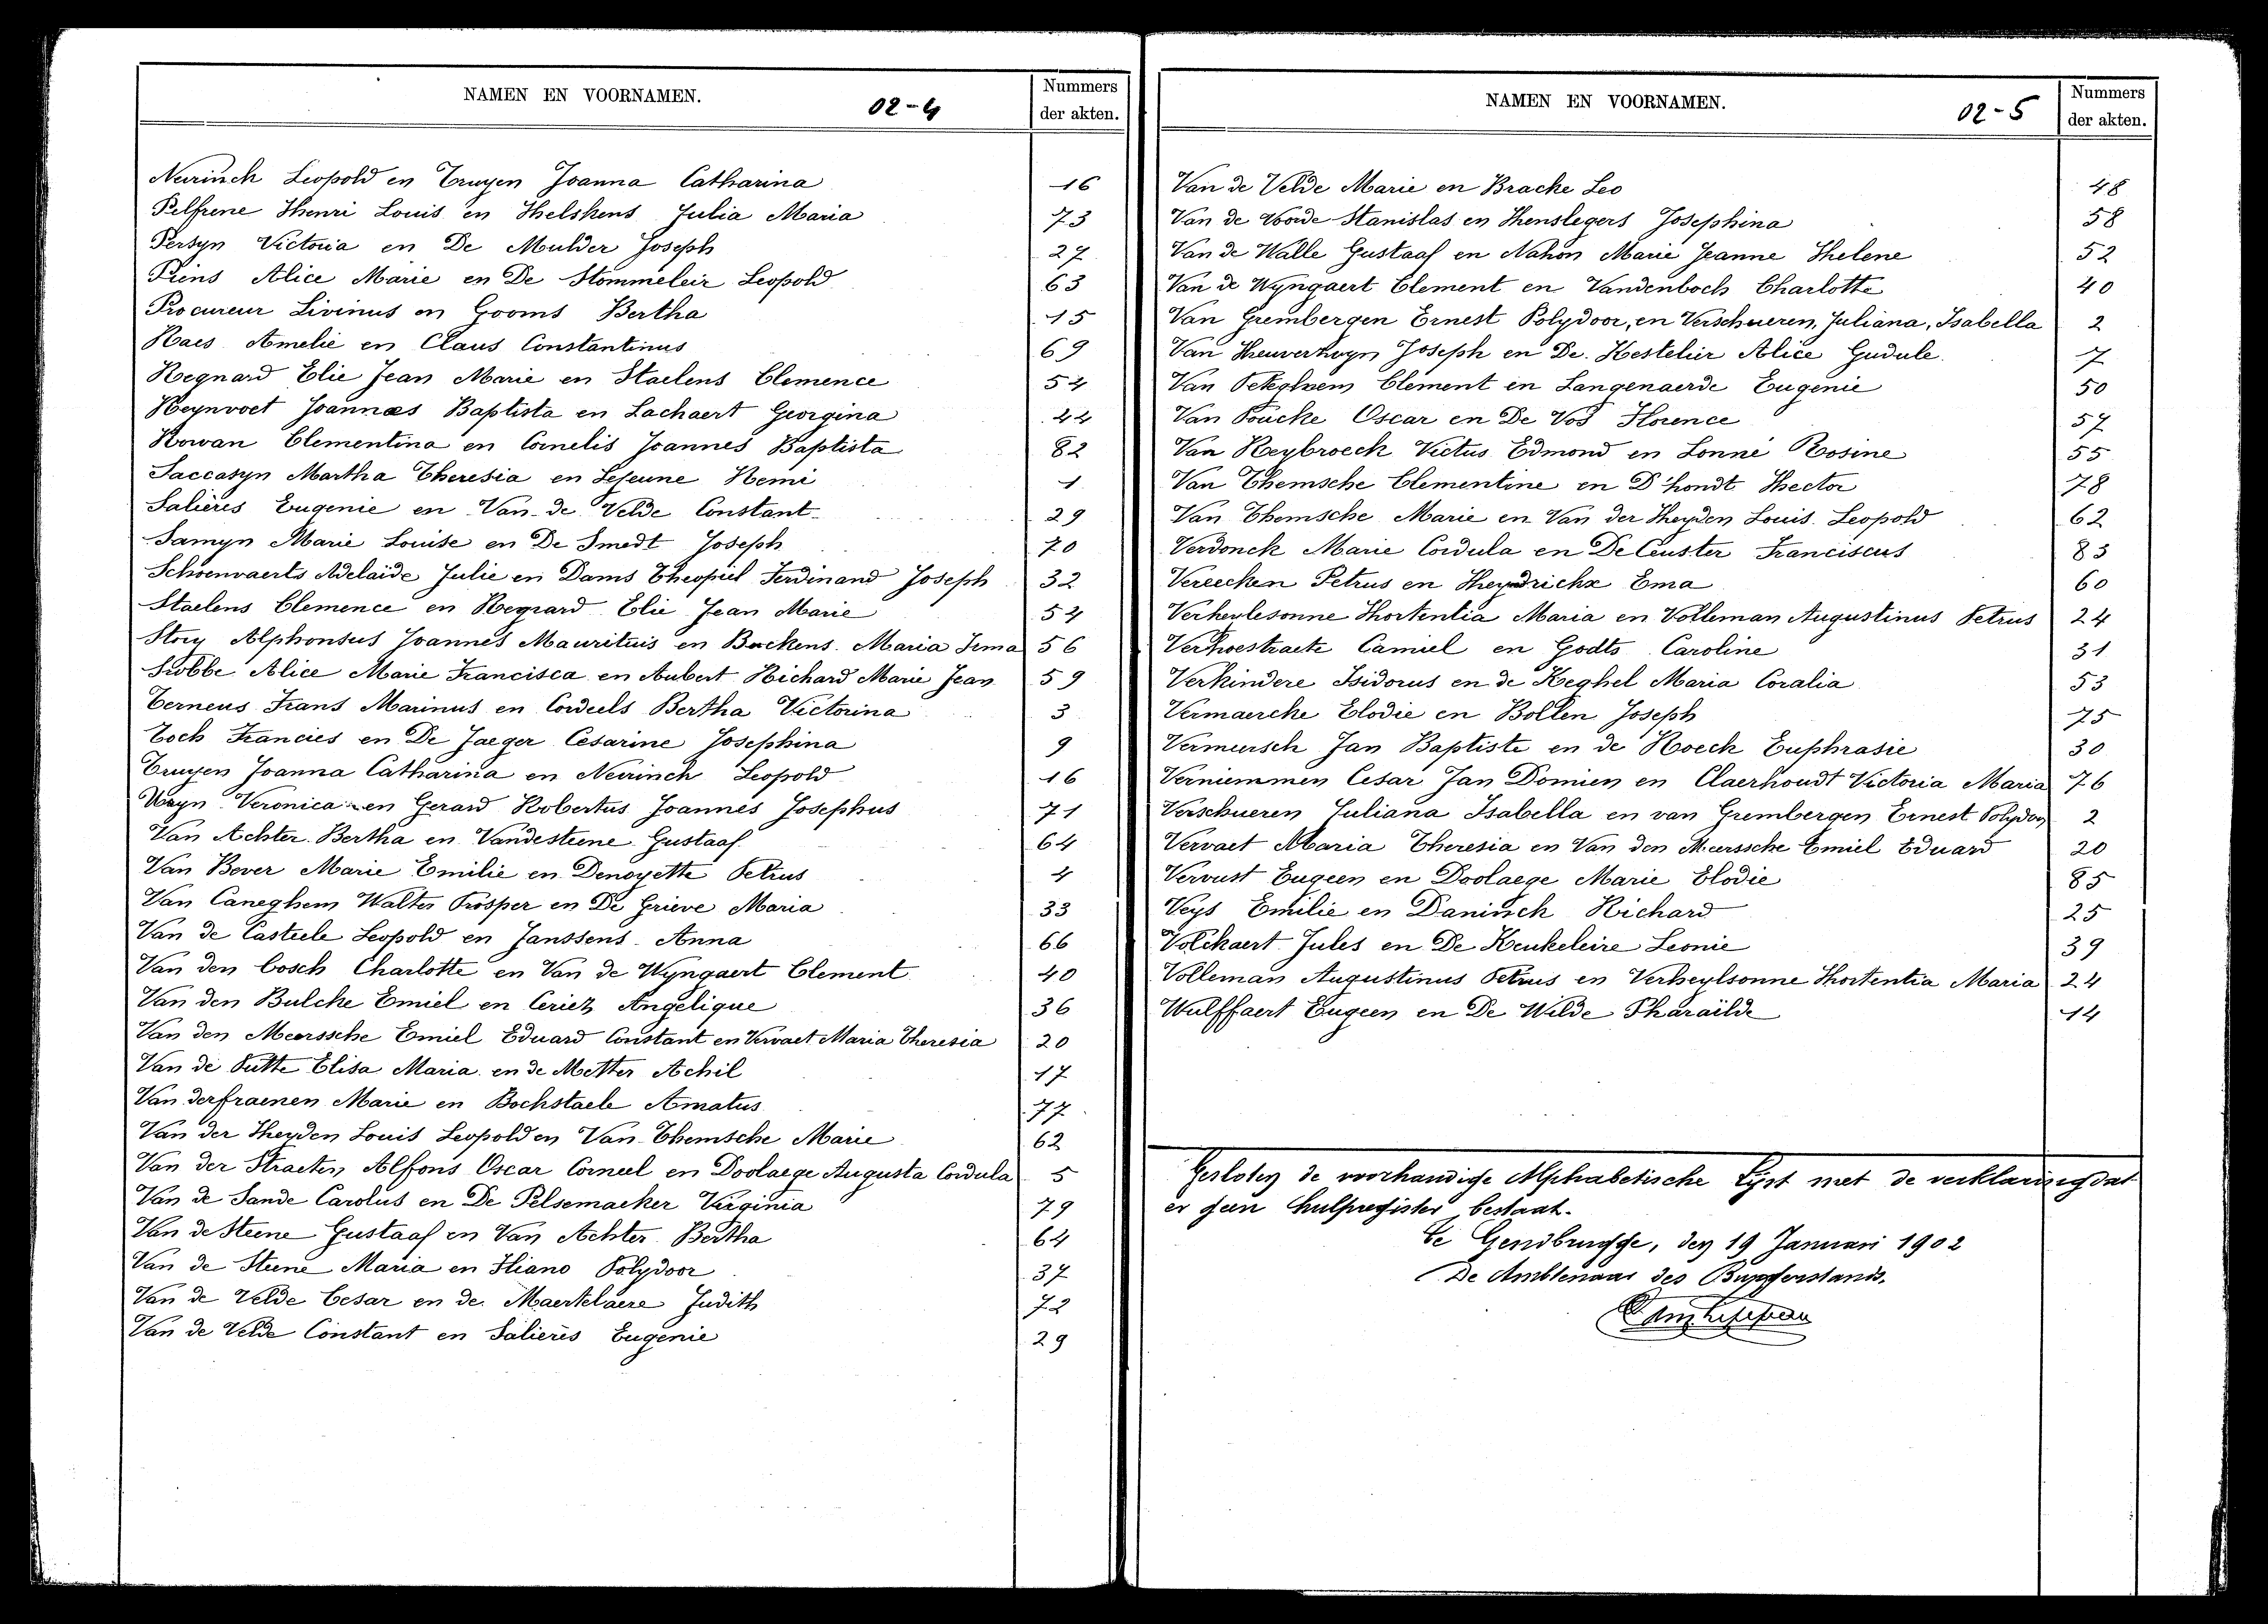 NAMEN EN VOORNAMEN. 02-4 Nummers der akten.
Neirinck Leopold en Truyen Joanna Catharina 16
Pelfrene Henri Louis en Helskens Julia Maria 73
Persyn Victoria en De Mulder Joseph 27
Piens Alice Marie en De Stommeleir Leopold 63
Procureur Livinus en Gooms Bertha 15
Raes Amelie en Claus Constantinus 69
Regnard Elie Jean Marie en Staelens Clemence 54
Reynvoet Joannes Baptista en Lachaert Georgina 44
Rowan Clementina en Cornelis Joannes Baptista 82
Saccasyn Martha Theresia en Lejeune Remi 1
Salières Eugenie en Van de Velde Constant 29
Samyn Marie Louise en De Smedt Joseph 70
Schoenvaerts Adelaïde Julie en Dams Theopiel Ferdinand Joseph 32
Staelens Clemence en Regnard Elie Jean Marie 54
Story Alphonsus Joannes Mauritius en Buckens Maria Irma 56
Strobbe Alice Marie Francisca en Aubert Richard Marie Jean 59
Terneus Frans Marinus en Cordeels Bertha Victorina 3
Toch Francies en De Jaeger Cesarine Josephina 9
Truyen Joanna Catharina en Neirinck Leopold 16
Veronica en Gerard Robertus Joannes Josephus 71
Van Achter Bertha en Vandesteene Gustaaf 64
Van Bever Marie Emilie en Denoyette Petrus 4
Van Caneghem Walter Prosper en De Grieve Maria 33
Van de Casteele Leopold en Janssens Anna 66
Van den bosch Charlotte en Van de Wyngaert Clement 40
Van den Bulcke Emiel en Ceriez Angelique 36
Van den Meerssche Emiel Eduard Constant en Vervaet Maria Theresia 20
Van de Putte Elisa Maria en de Metter Achil 17
Van derfraenen Marie en Bockstaele Amatus 77
Van der Heyden Louis Leopold en Van Themsche Marie 62
Van der Straeten Alfons Oscar Corneel en Doolaege Augusta Cordula 5
Van de Sande Carolus en De Pelsemaeker Virginia 79
Van de Steene Gustaaf en Van Achter Bertha 64
Van de Steene Maria en Fliano Polydoor 37
Van de Velde Cesar en de Maertelaere Judith 72
Van de Velde Constant en Salières Eugenie 29
NAMEN EN VOORNAMEN. 02-5 Nummers der akten.
Van de Velde Marie en Bracke Leo 48
Van de Voorde Stanislas en Henslegers Josephina 58
Van de Walle Gustaaf en Nahon Marie Jeanne Helene 52
Van de Wyngaert Clement en Vandenboch Charlotte 40
Van Grembergen Ernest Polydoor, en Verschueren, Juliana, Isabella 2
Van Heuverzwyn Joseph en De Kestelier Alice Gudule 7
Van Peteghem Clement en Langenaerde Eugenie 50
Van Poucke Oscar en De Vos Florence 57
Van Reybroeck Victus Edmond en Lonné Rosine 55
Van Themsche Clementine en D'hondt Hector 78
Van Themsche Marie en Van der Heyden Louis Leopold 62
Verdonck Marie Cordula en De Ceuster Franciscus 83
Vereecken Petrus en Heyndrickx Ema 60
Verheylesonne Hortentia Maria en Volleman Augustinus Petrus 24
Verhoestraete Camiel en Godts Caroline 31
Verkindere Isidorus en de Keghel Maria Coralia 53
Vermaercke Elodie en Bollen Joseph 75
Vermeersch Jan Baptiste en de Roeck Euphrasie 30
Verniemmen Cesar Jan Domien en Claerhoudt Victoria Maria 76
Verschueren Juliana Isabella en van Grembergen Ernest Polydoor 2
Vervaet Maria Theresia en Van den Meerssche Emiel Eduard 20
Vervust Eugeen en Doolaege Marie Elodie 85
Veys Emilie en Daninck Richard 25
Volckaert Jules en De Keukeleire Leonie 39
Volleman Augustinus Petrus en Verheylsonne Hortentia Maria 24
Wulffaert Eugeen en De Wilde Pharaïlde 14
Gesloten de voorhandige Alphabetische Lijst met de verklaring dat
er geen hulpregister bestaat.
Te Gendbrugge, den 19 Januari 1902
De Ambtenaar des Burgerstands.